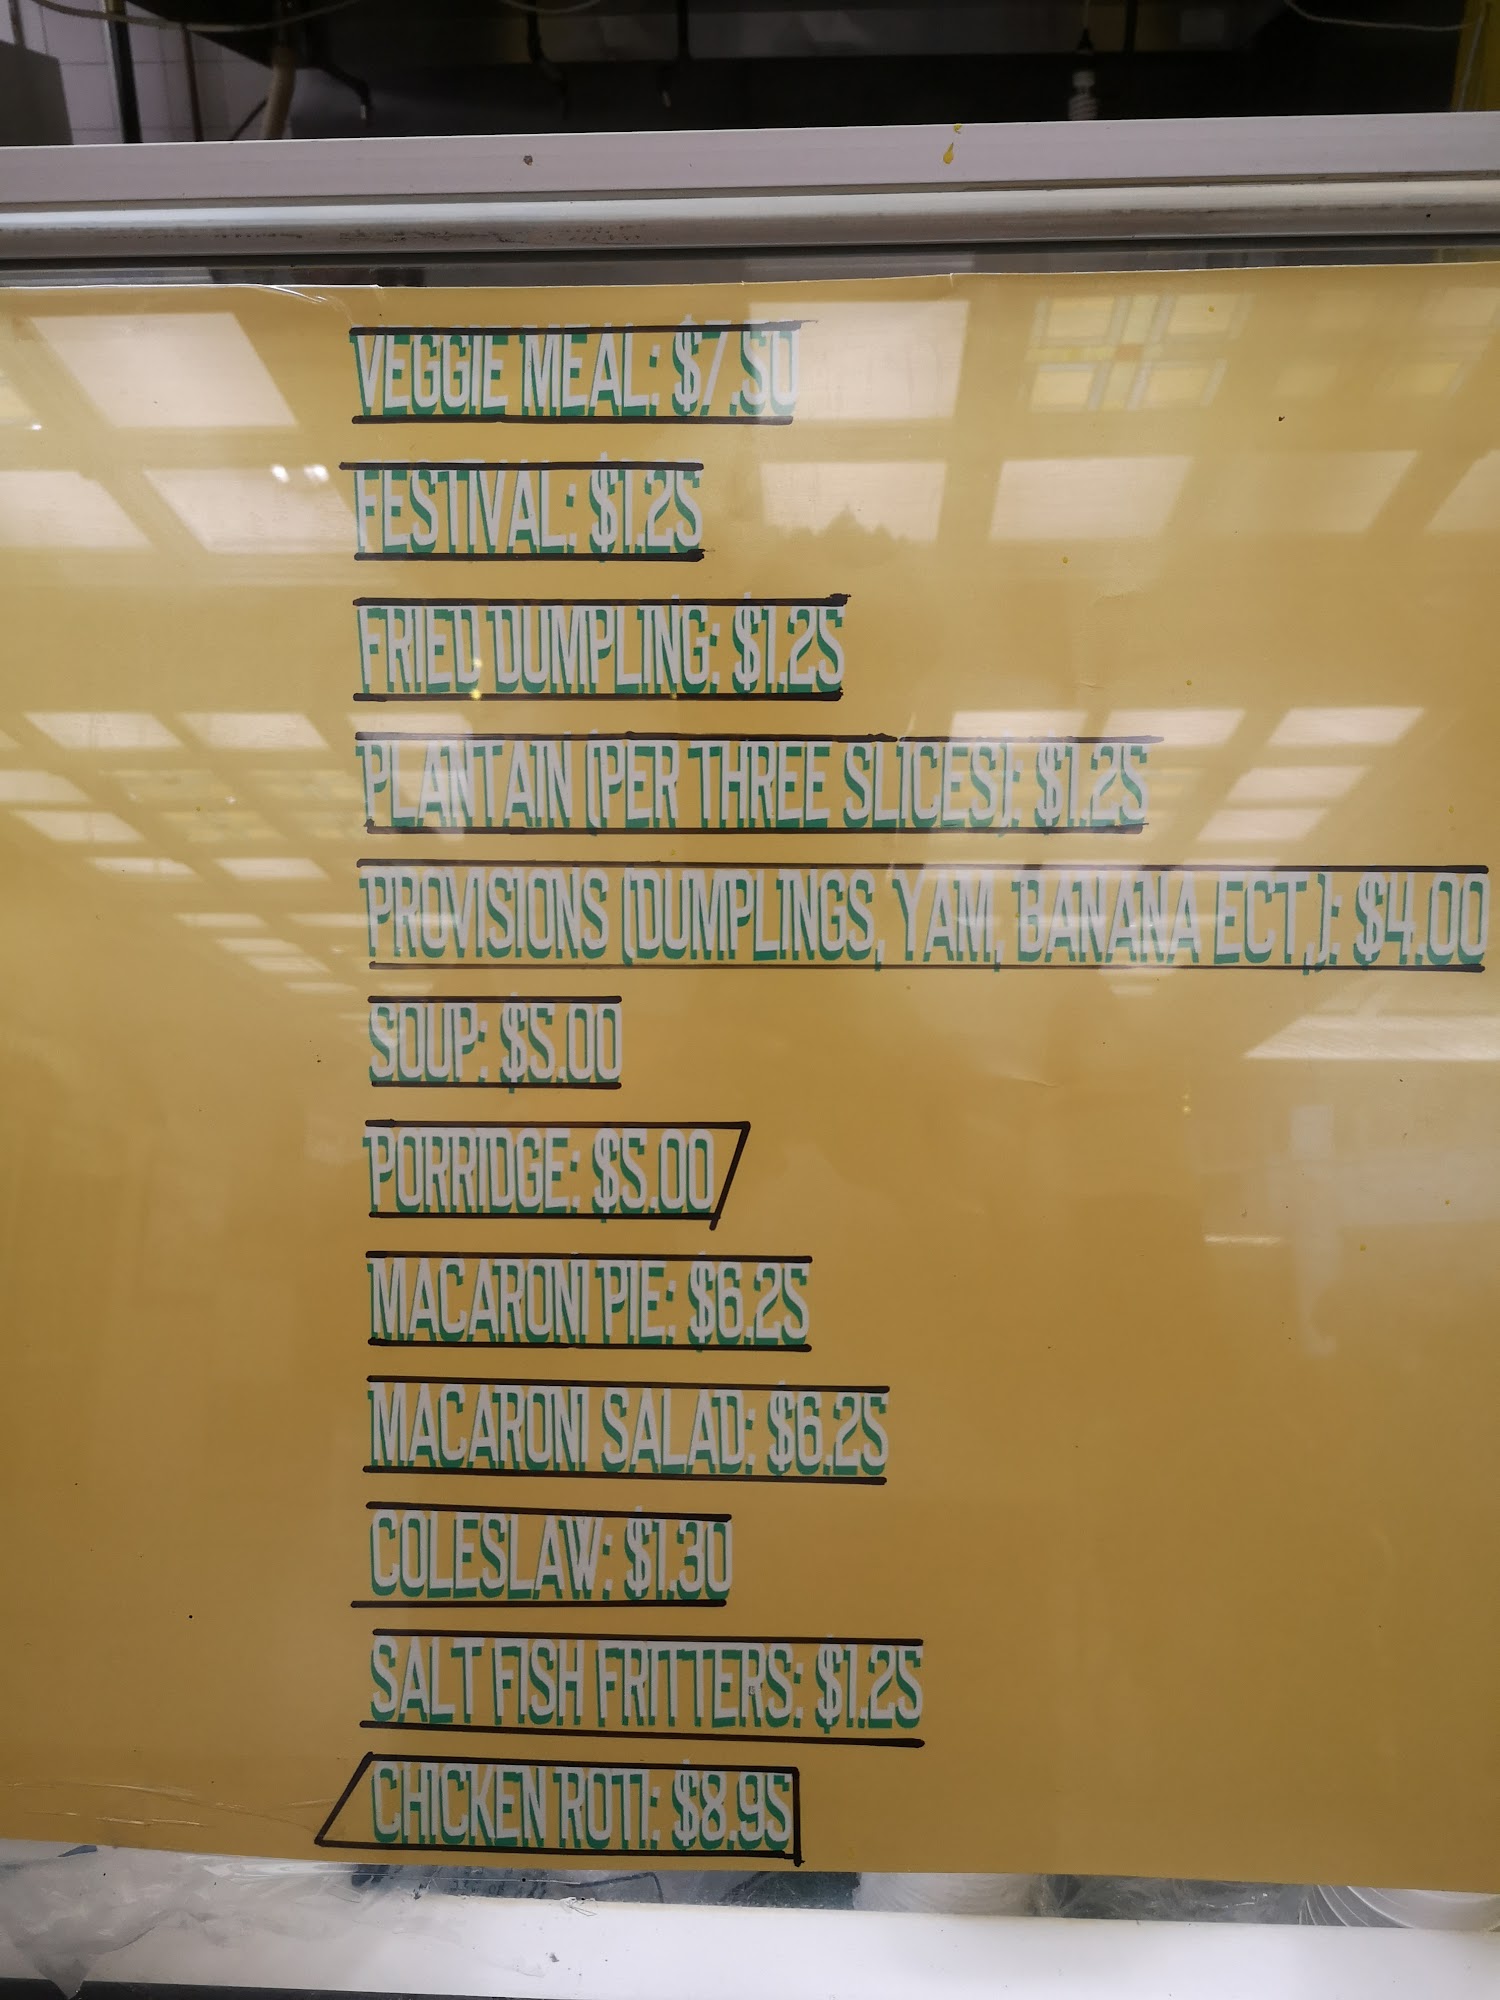 VEGGIE MEAL: $7.50
FESTIVAL: $1.25
FRIED DUMPLING: $1.25
PLANTAIN (PER THREE SLICES): $1.25
PROVISIONS (DUMPLINGS, YAM, BANANA ECT,): $4.00
SOUP: $5.00
PORRIDGE: $5.00
MACARONI PIE: $6.25
MACARONI SALAD: $6.25
COLESLAW: $1.30
SALT FISH FRITTERS: $1.25
CHICKEN ROTI: $8.95